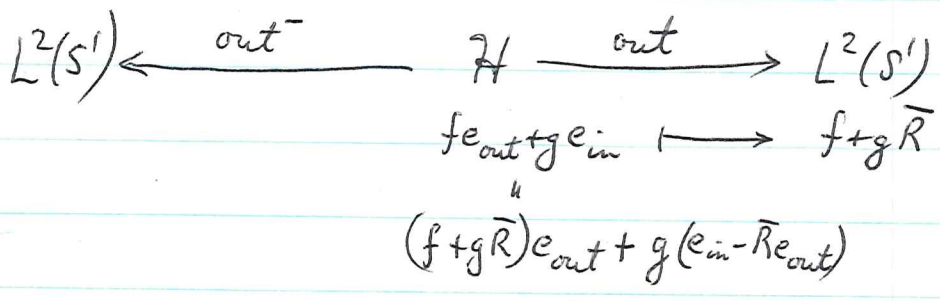 L²(S¹) ←out⁻— H —out→ L²(S¹)
fe_out + ge_in ⟼ f + gR̄
"
(f + gR̄)e_out + g(e_in - R̄e_out)